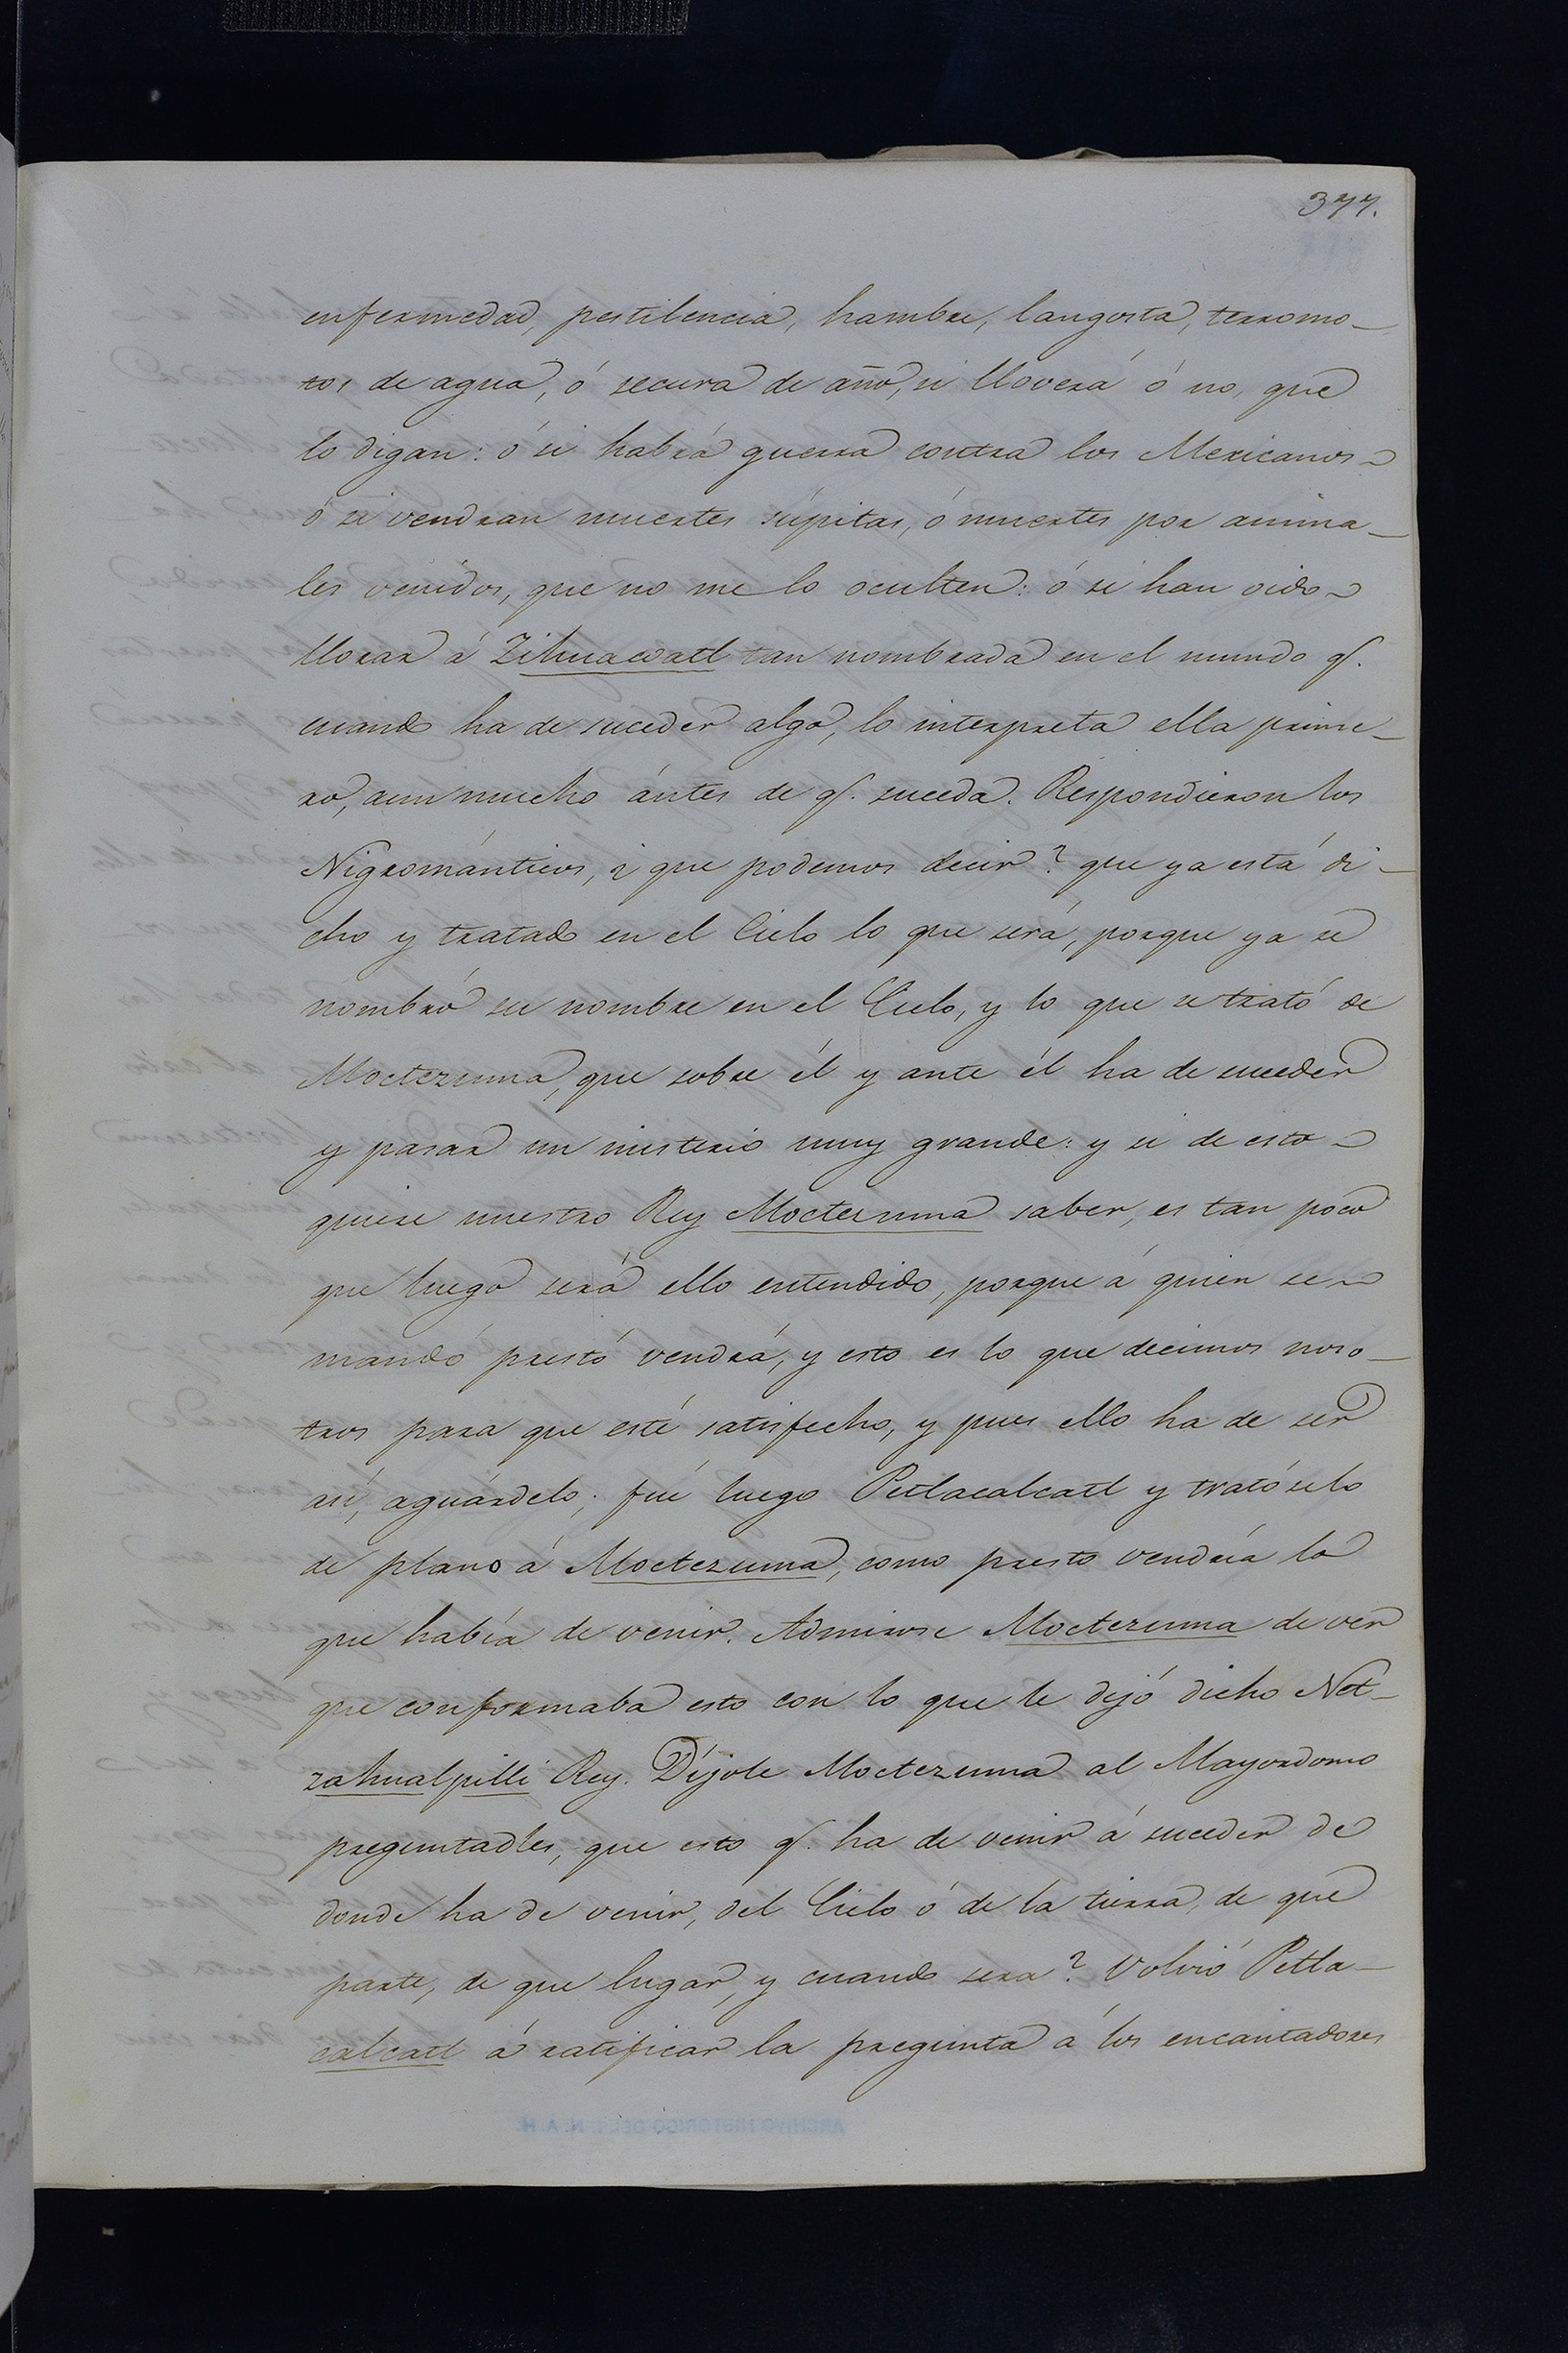 377.
enfermedad, pestilencia, hambre, langosta, terromo-
tos de agua, ó secura de año, si lloverá ó no, que
lo digan: ó si habrá guerra contra los Mexicanos
ó si vendran muertes súpitas, ó muertes por anima-
les venidos, que no me lo oculten: ó si han oido
llorar á Zihuacoatl tan nombrada en el mundo q.
cuando ha de suceder algo, lo interpreta ella prime-
ro, aun mucho ántes de q. suceda. Respondieron los
Nigrománticos, ¿ que podemos decir? que ya está di-
cho y tratado en el Cielo lo que será, porque ya se
nombró su nombre en el Cielo, y lo que se trató de
Moctezuma, que sobre él y ante él ha de suceder
y pasar un misterio muy grande: y si de esto
quiere nuestro Rey Moctezuma saber, es tan poco
que luego será ello entendido, porque á quien se
mandó prestó vendrá, y esto es lo que decimos noso-
tros para que esté satisfecho, y pues ello ha de ser
así, aguárdelo; fué luego Petlacalcatl y tratóselo
de plano á Moctezuma, como presto vendría lo
que había de venir. Admirose Moctezuma de ver
que conformaba esto con lo que le dejó dicho Net-
zahualpilli Rey. Díjole Moctezuma al Mayordomo
preguntadles, que esto q. ha de venir á suceder de
donde ha de venir, del Cielo ó de la tierra, de que
parte, de que lugar, y cuando sera? Volvió Petla-
calcatl á ratificar la pregunta á los encantadores
ARCHIVO HISTORICO DEL I. N. A. H.